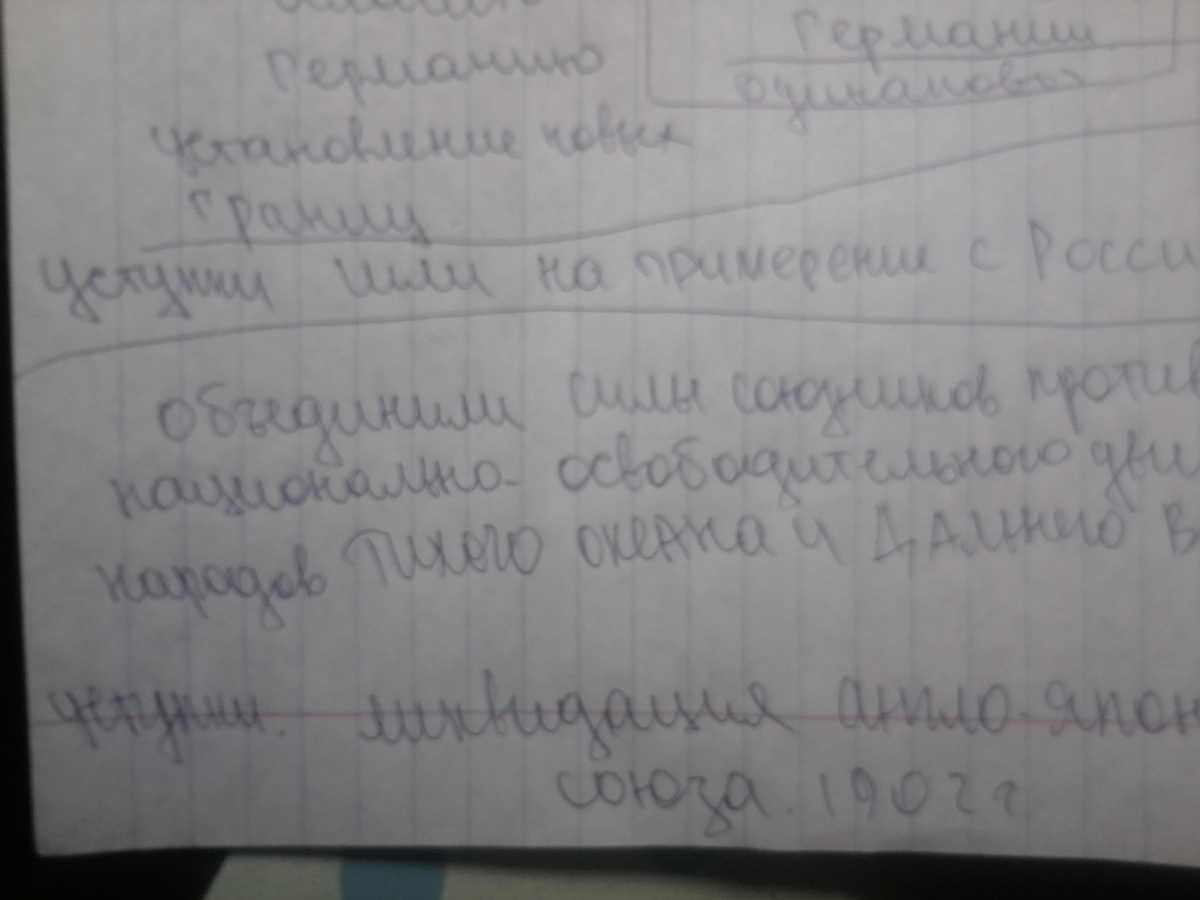 Германию
Германии
одинаковы
установление новых
границ
уступки шли на примерение с Росси
объединили силы союзников против
национально- освободительного дви
народов Тихого океана и Дальнего В
уступки. ликвидация англо-япон
союза. 1902 г.